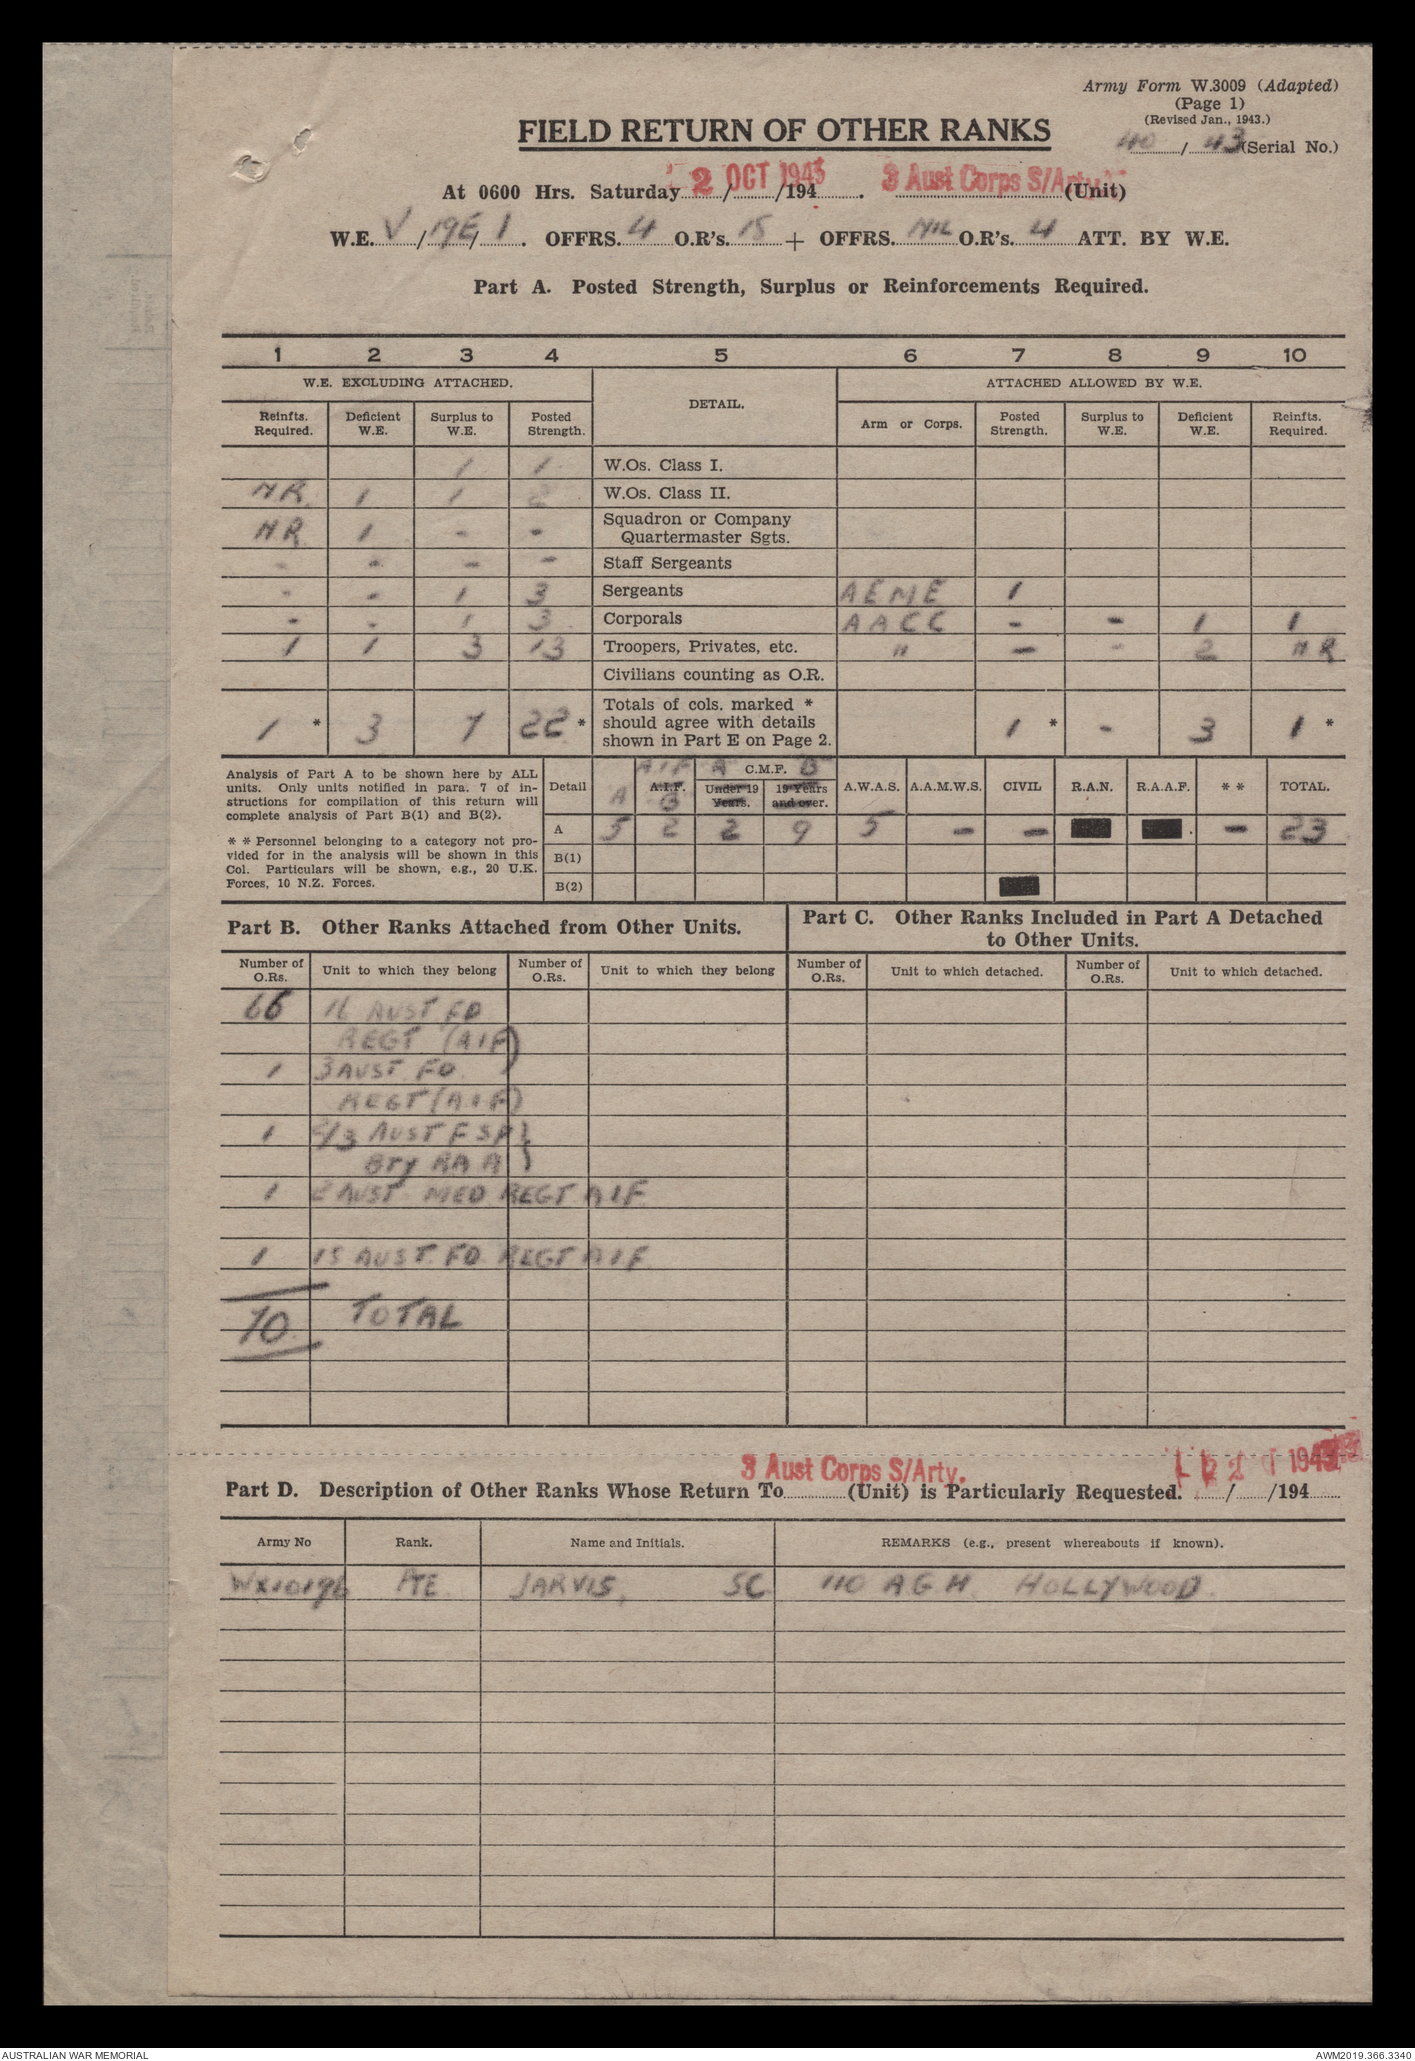 Army Form W.3009 (Adapted)
(Page 1)
(Revised Jan., 1943.)
40 / 43 (Serial No.)
FIELD RETURN OF OTHER RANKS
At 0600 Hrs. Saturday 2 OCT 1943 /194 . 3 Aust Corps S/Arty. (Unit)
W.E. V / 19E / 1 . OFFRS. 4 O.R's. 15 + OFFRS. NIL O.R's. 4 ATT. BY W.E.
Part A. Posted Strength, Surplus or Reinforcements Required.
1 2 3 4 5 6 7 8 9 10
W.E. EXCLUDING ATTACHED. DETAIL. ATTACHED ALLOWED BY W.E.
Reinfts. Required. Deficient W.E. Surplus to W.E. Posted Strength. Arm or Corps. Posted Strength. Surplus to W.E. Deficient W.E. Reinfts. Required.
1 1 W.Os. Class I.
N R 1 1 2 W.Os. Class II.
N R 1 - - Squadron or Company Quartermaster Sgts.
- - - - Staff Sergeants
- - 1 3 Sergeants A E M E 1
- - 1 3 Corporals A A C C - - 1 1
1 1 3 13 Troopers, Privates, etc. " - - 2 N R
Civilians counting as O.R.
1 * 3 7 22 * Totals of cols. marked * should agree with details shown in Part E on Page 2. 1 * - 3 1 *
Analysis of Part A to be shown here by ALL
units. Only units notified in para. 7 of in-
structions for compilation of this return will
complete analysis of Part B(1) and B(2).
* * Personnel belonging to a category not pro-
vided for in the analysis will be shown in this
Col. Particulars will be shown, e.g., 20 U.K.
Forces, 10 N.Z. Forces.
A I F A C.M.F. B
Detail A A.I.F. B Under 19 Years. 19 Years and over. A.W.A.S. A.A.M.W.S. CIVIL R.A.N. R.A.A.F. * * TOTAL.
A 5 2 2 9 5 - - - 23
B(1)
B(2)
Part B. Other Ranks Attached from Other Units.
Part C. Other Ranks Included in Part A Detached
to Other Units.
Number of O.Rs. Unit to which they belong Number of O.Rs. Unit to which they belong Number of O.Rs. Unit to which detached. Number of O.Rs. Unit to which detached.
66 16 AUST FD
REGT (AIF)
1 3 AUST FD
REGT (A.I.F)
1 2/3 AUST F SP }
Bty RA A }
1 2 AUST MED REGT AIF
1 15 AUST. FD REGT AIF
70 TOTAL
3 Aust Corps S/Arty.
Part D. Description of Other Ranks Whose Return To (Unit) is Particularly Requested. / /194
Army No Rank. Name and Initials. REMARKS (e.g., present whereabouts if known).
WX10196 PTE JARVIS, SC 110 A G H HOLLYWOOD.
AUSTRALIAN WAR MEMORIAL
AWM2019.366.3340